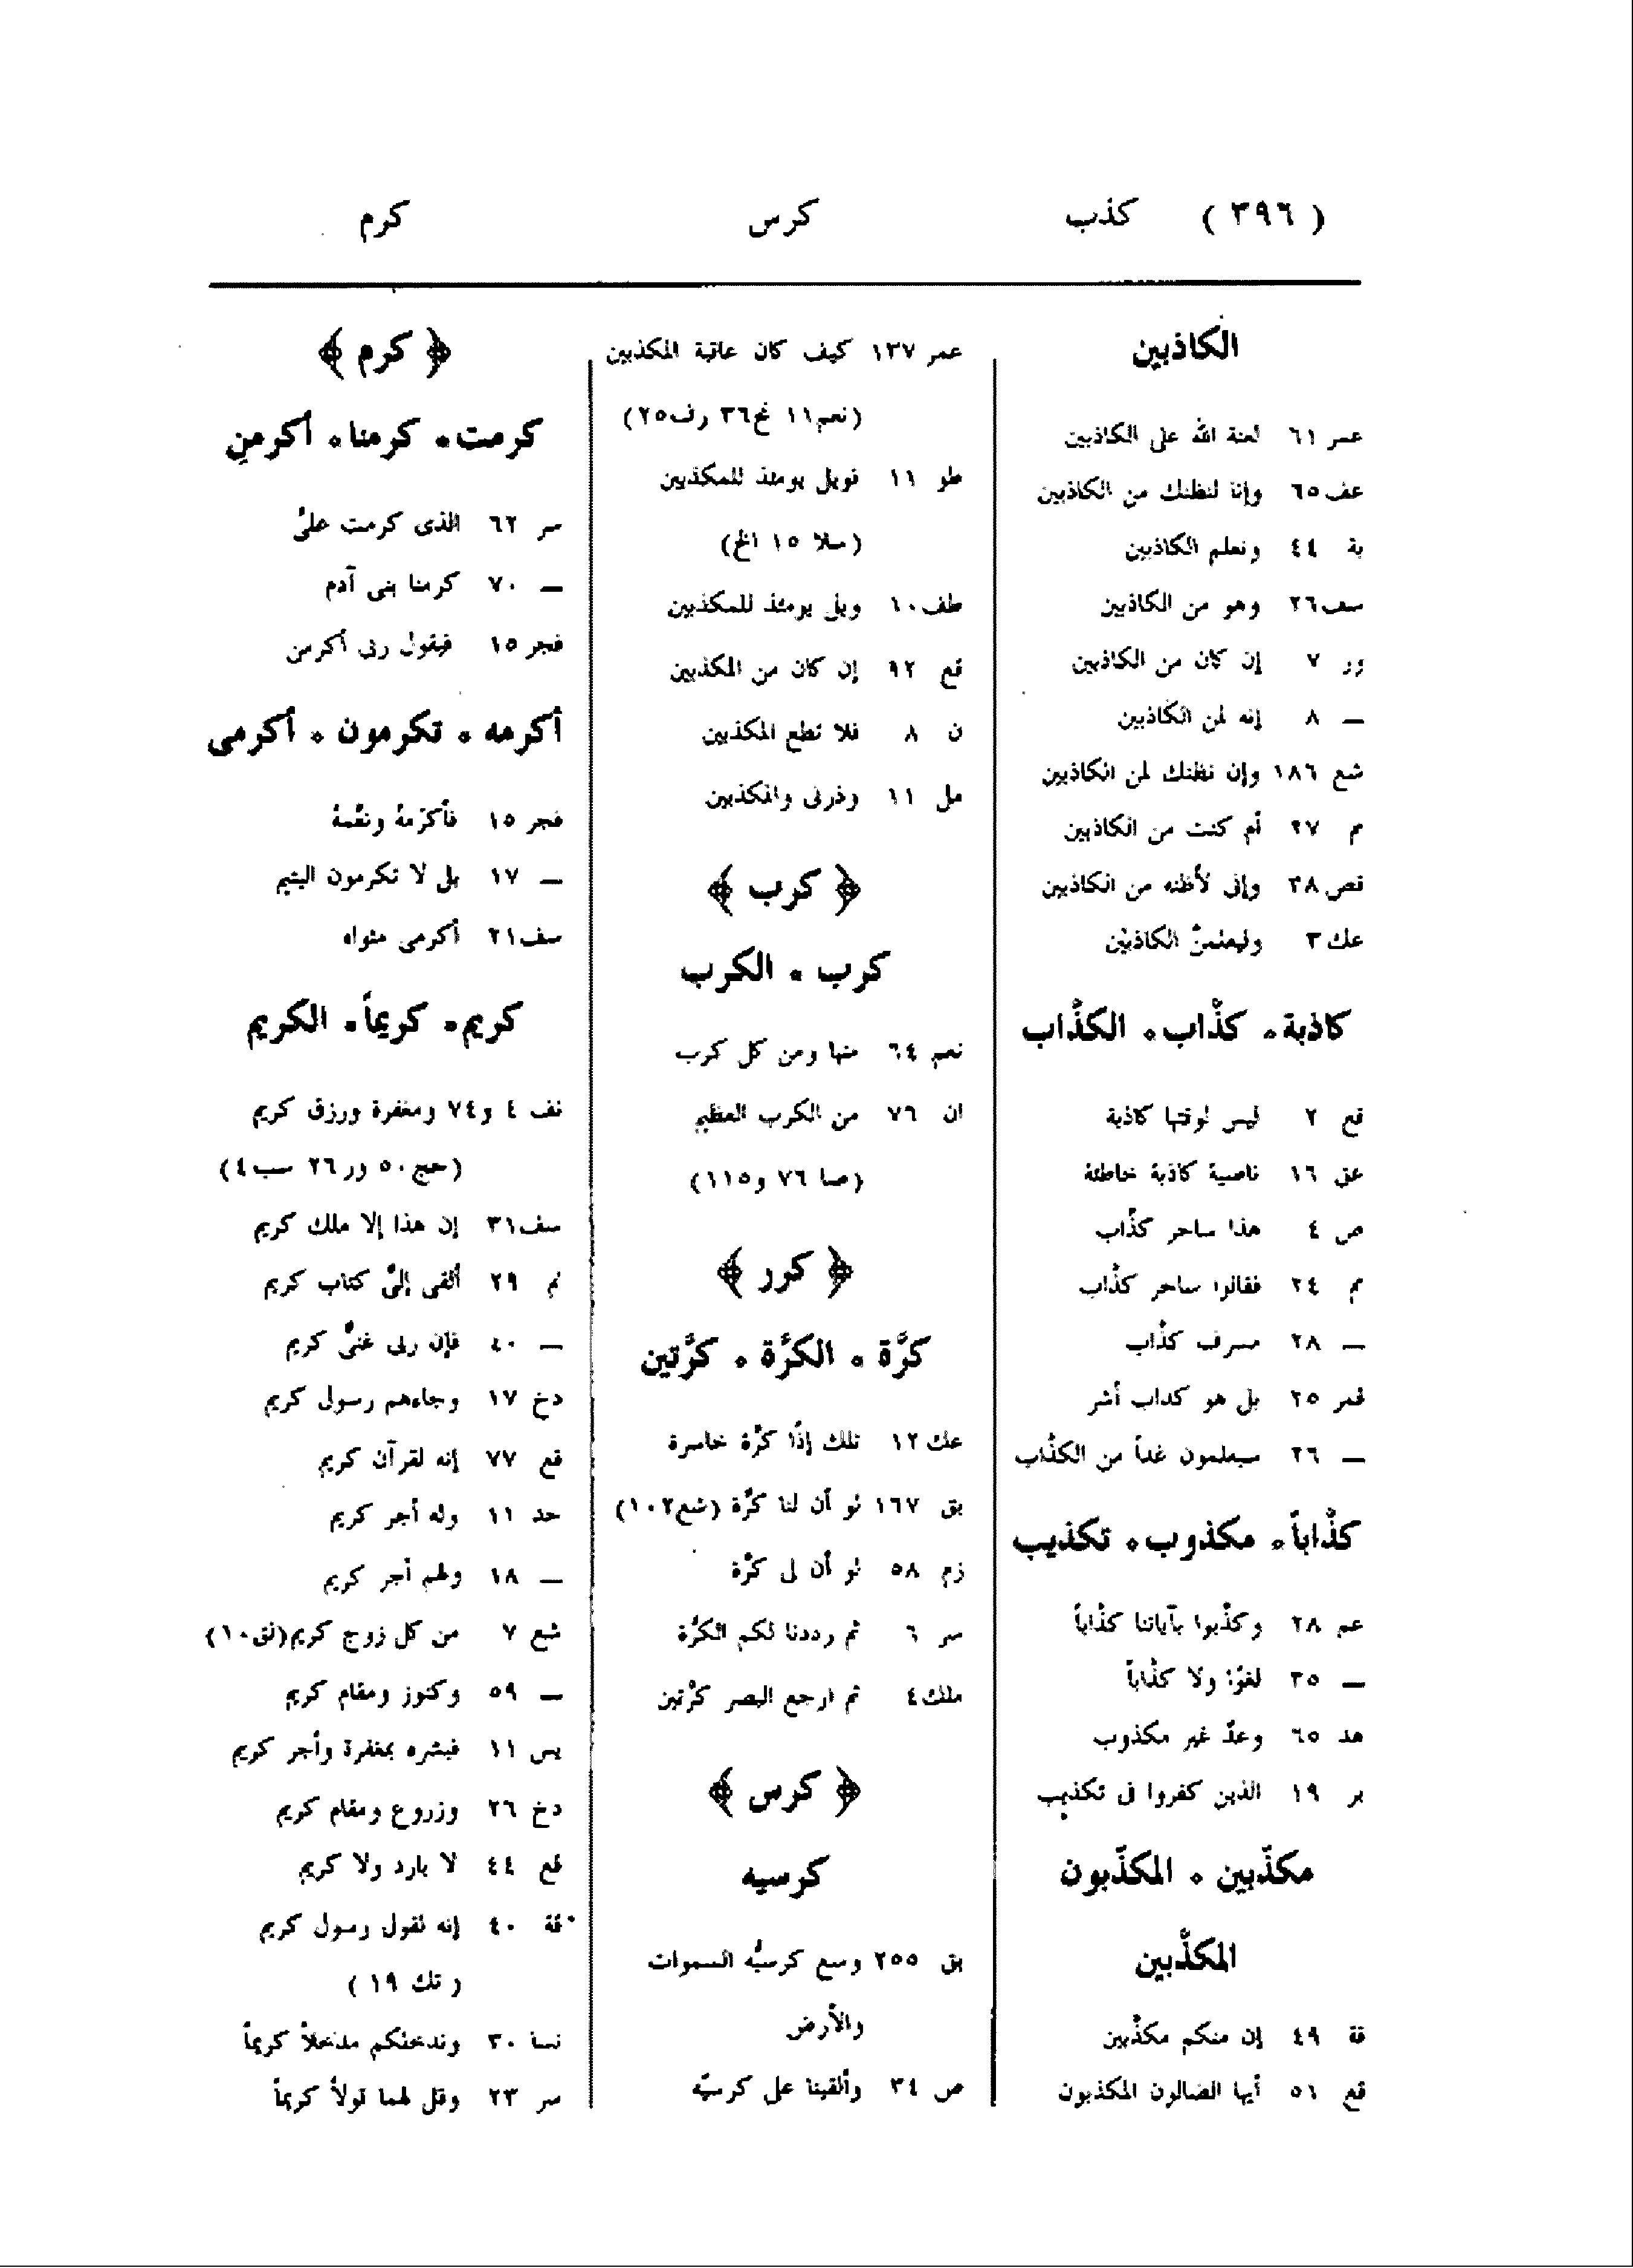 ( ٣٩٦ ) كذب كرس كرم
الكاذبين
عمر ٦١ لعنة الله على الكاذبين
عف ٦٥ وإنا لنظنك من الكاذبين
بة ٤٤ وتعلم الكاذبين
سف ٢٦ وهو من الكاذبين
ور ٧ إن كان من الكاذبين
— ٨ إنه لمن الكاذبين
شع ١٨٦ وإن نظنك لمن الكاذبين
م ٢٧ أم كنت من الكاذبين
قص ٣٨ وإنى لأظنه من الكاذبين
عك ٣ وليعلمنّ الكاذبين
كاذبة ٠ كذّاب ٠ الكذّاب
قع ٢ ليس لوقعتها كاذبة
عق ١٦ ناصية كاذبة خاطئة
ص ٤ هذا ساحر كذّاب
مم ٢٤ فقالوا ساحر كذّاب
— ٢٨ مسرف كذّاب
قمر ٢٥ بل هو كذاب أشر
— ٢٦ سيعلمون غداً من الكذّاب
كذّاباً ٠ مكذوب ٠ تكذيب
عم ٢٨ وكذّبوا بآياتنا كذّاباً
— ٣٥ لغوًا ولا كذّاباً
هد ٦٥ وعدٌ غير مكذوب
بر ١٩ الذين كفروا فى تكذيب
مكذّبين ٠ المكذّبون
المكذّبين
قة ٤٩ إن منكم مكذّبين
قع ٥١ أيها الضالون المكذبون
عمر ١٣٧ كيف كان عاقبة المكذبين
(نعم ١١ نح ٣٦ رف ٢٥)
طو ١١ فويل يومئذ للمكذبين
(سلا ١٥ الخ)
طف ١٠ ويل يومئذ للمكذبين
قع ٩٢ إن كان من المكذبين
ن ٨ فلا تطع المكذبين
مل ١١ وذرنى والمكذبين
﴿ كرب ﴾
كرب ٠ الكرب
نعم ٦٤ منها ومن كل كرب
ان ٧٦ من الكرب العظيم
(صا ٧٦ و١١٥)
﴿ كرر ﴾
كرَّة ٠ الكرَّة ٠ كرَّتين
عك ١٢ تلك إذًا كرَّة خاسرة
بق ١٦٧ لو أن لنا كرَّة (شع ١٠٢)
زم ٥٨ لو أن لى كرَّة
سر ٦ ثم رددنا لكم الكرَّة
ملك ٤ ثم ارجع البصر كرَّتين
﴿ كرس ﴾
كرسيه
بق ٢٥٥ وسع كرسيُّه السموات
والأرض
ص ٣٤ وألقينا على كرسيّه
﴿ كرم ﴾
كرمت ٠ كرمنا ٠ أكرمن
سر ٦٢ الذى كرمت علىَّ
— ٧٠ كرمنا بنى آدم
فجر ١٥ فيقول ربى أكرمن
أكرمه ٠ تكرمون ٠ أكرمى
فجر ١٥ فأكرَمهُ ونعَّمهُ
— ١٧ بل لا تكرمون اليتيم
سف ٢١ أكرمى مثواه
كريم ٠ كريماً ٠ الكريم
نف ٤ و٧٤ ومغفرة ورزق كريم
(حج ٥٠ ور ٢٦ سب ٤)
سف ٣١ إن هذا إلا ملك كريم
نم ٢٩ ألقى إلىَّ كتاب كريم
— ٤٠ فإن ربى غنىٌّ كريم
دخ ١٧ وجاءهم رسول كريم
قع ٧٧ إنه لقرآن كريم
حد ١١ وله أجر كريم
— ١٨ ولهم أجر كريم
شع ٧ من كل زوج كريم (لق ١٠)
— ٥٩ وكنوز ومقام كريم
يس ١١ فبشره بمغفرة وأجر كريم
دخ ٢٦ وزروع ومقام كريم
قع ٤٤ لا بارد ولا كريم
قة ٤٠ إنه لقول رسول كريم
( تك ١٩ )
نسا ٣٠ وندخلكم مدخلاً كريماً
سر ٢٣ وقل لهما قولاً كريماً